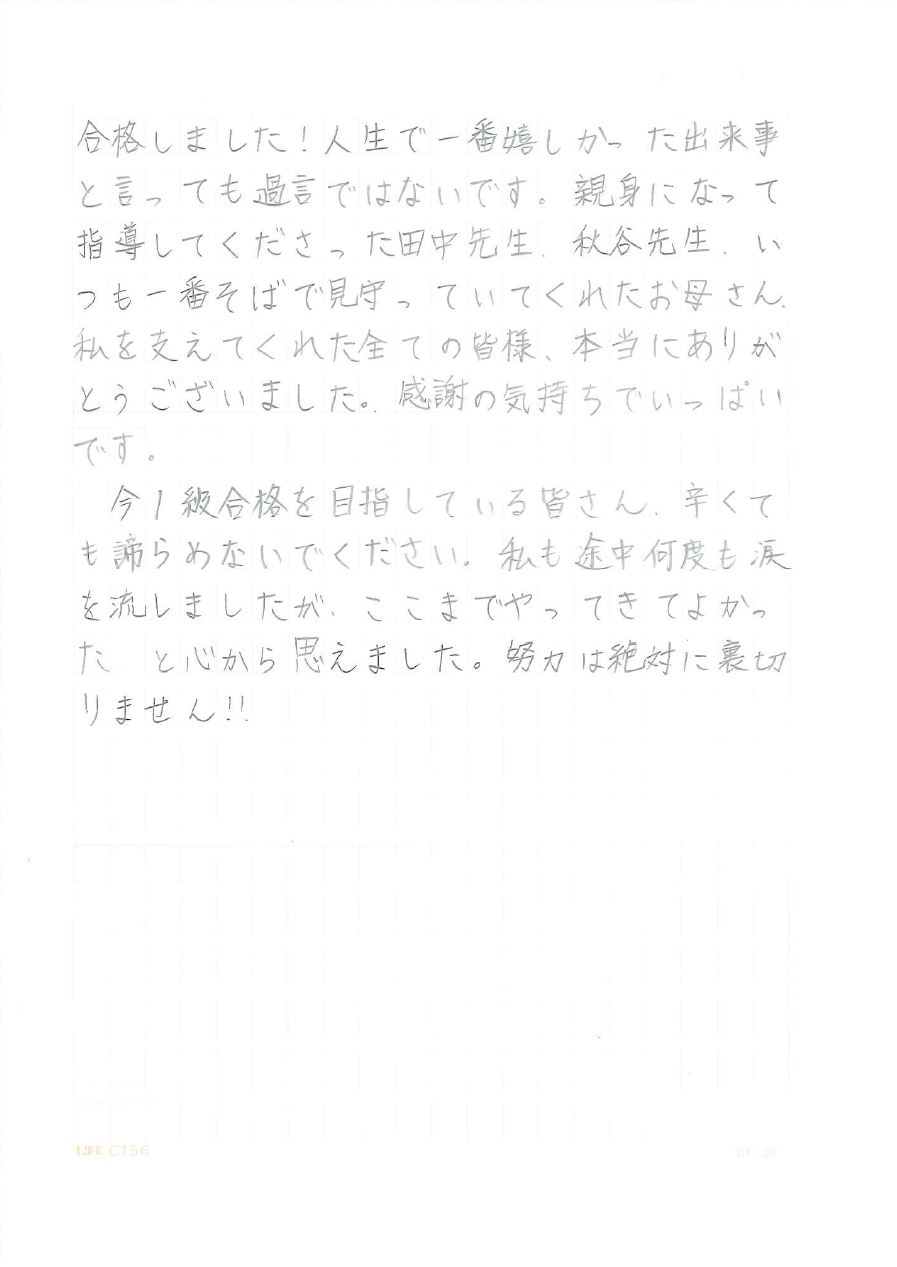 合格しました！人生で一番嬉しかった出来事
と言っても過言ではないです。親身になって
指導してくださった田中先生、秋谷先生、い
つも一番そばで見守っていてくれたお母さん、
私を支えてくれた全ての皆様、本当にありが
とうございました。感謝の気持ちでいっぱい
です。
今1級合格を目指している皆さん、辛くて
も諦らめないでください。私も途中何度も涙
を流しましたが、ここまでやってきてよかっ
た、と心から思えました。努力は絶対に裏切
りません!!
LIFE C156
20 × 20